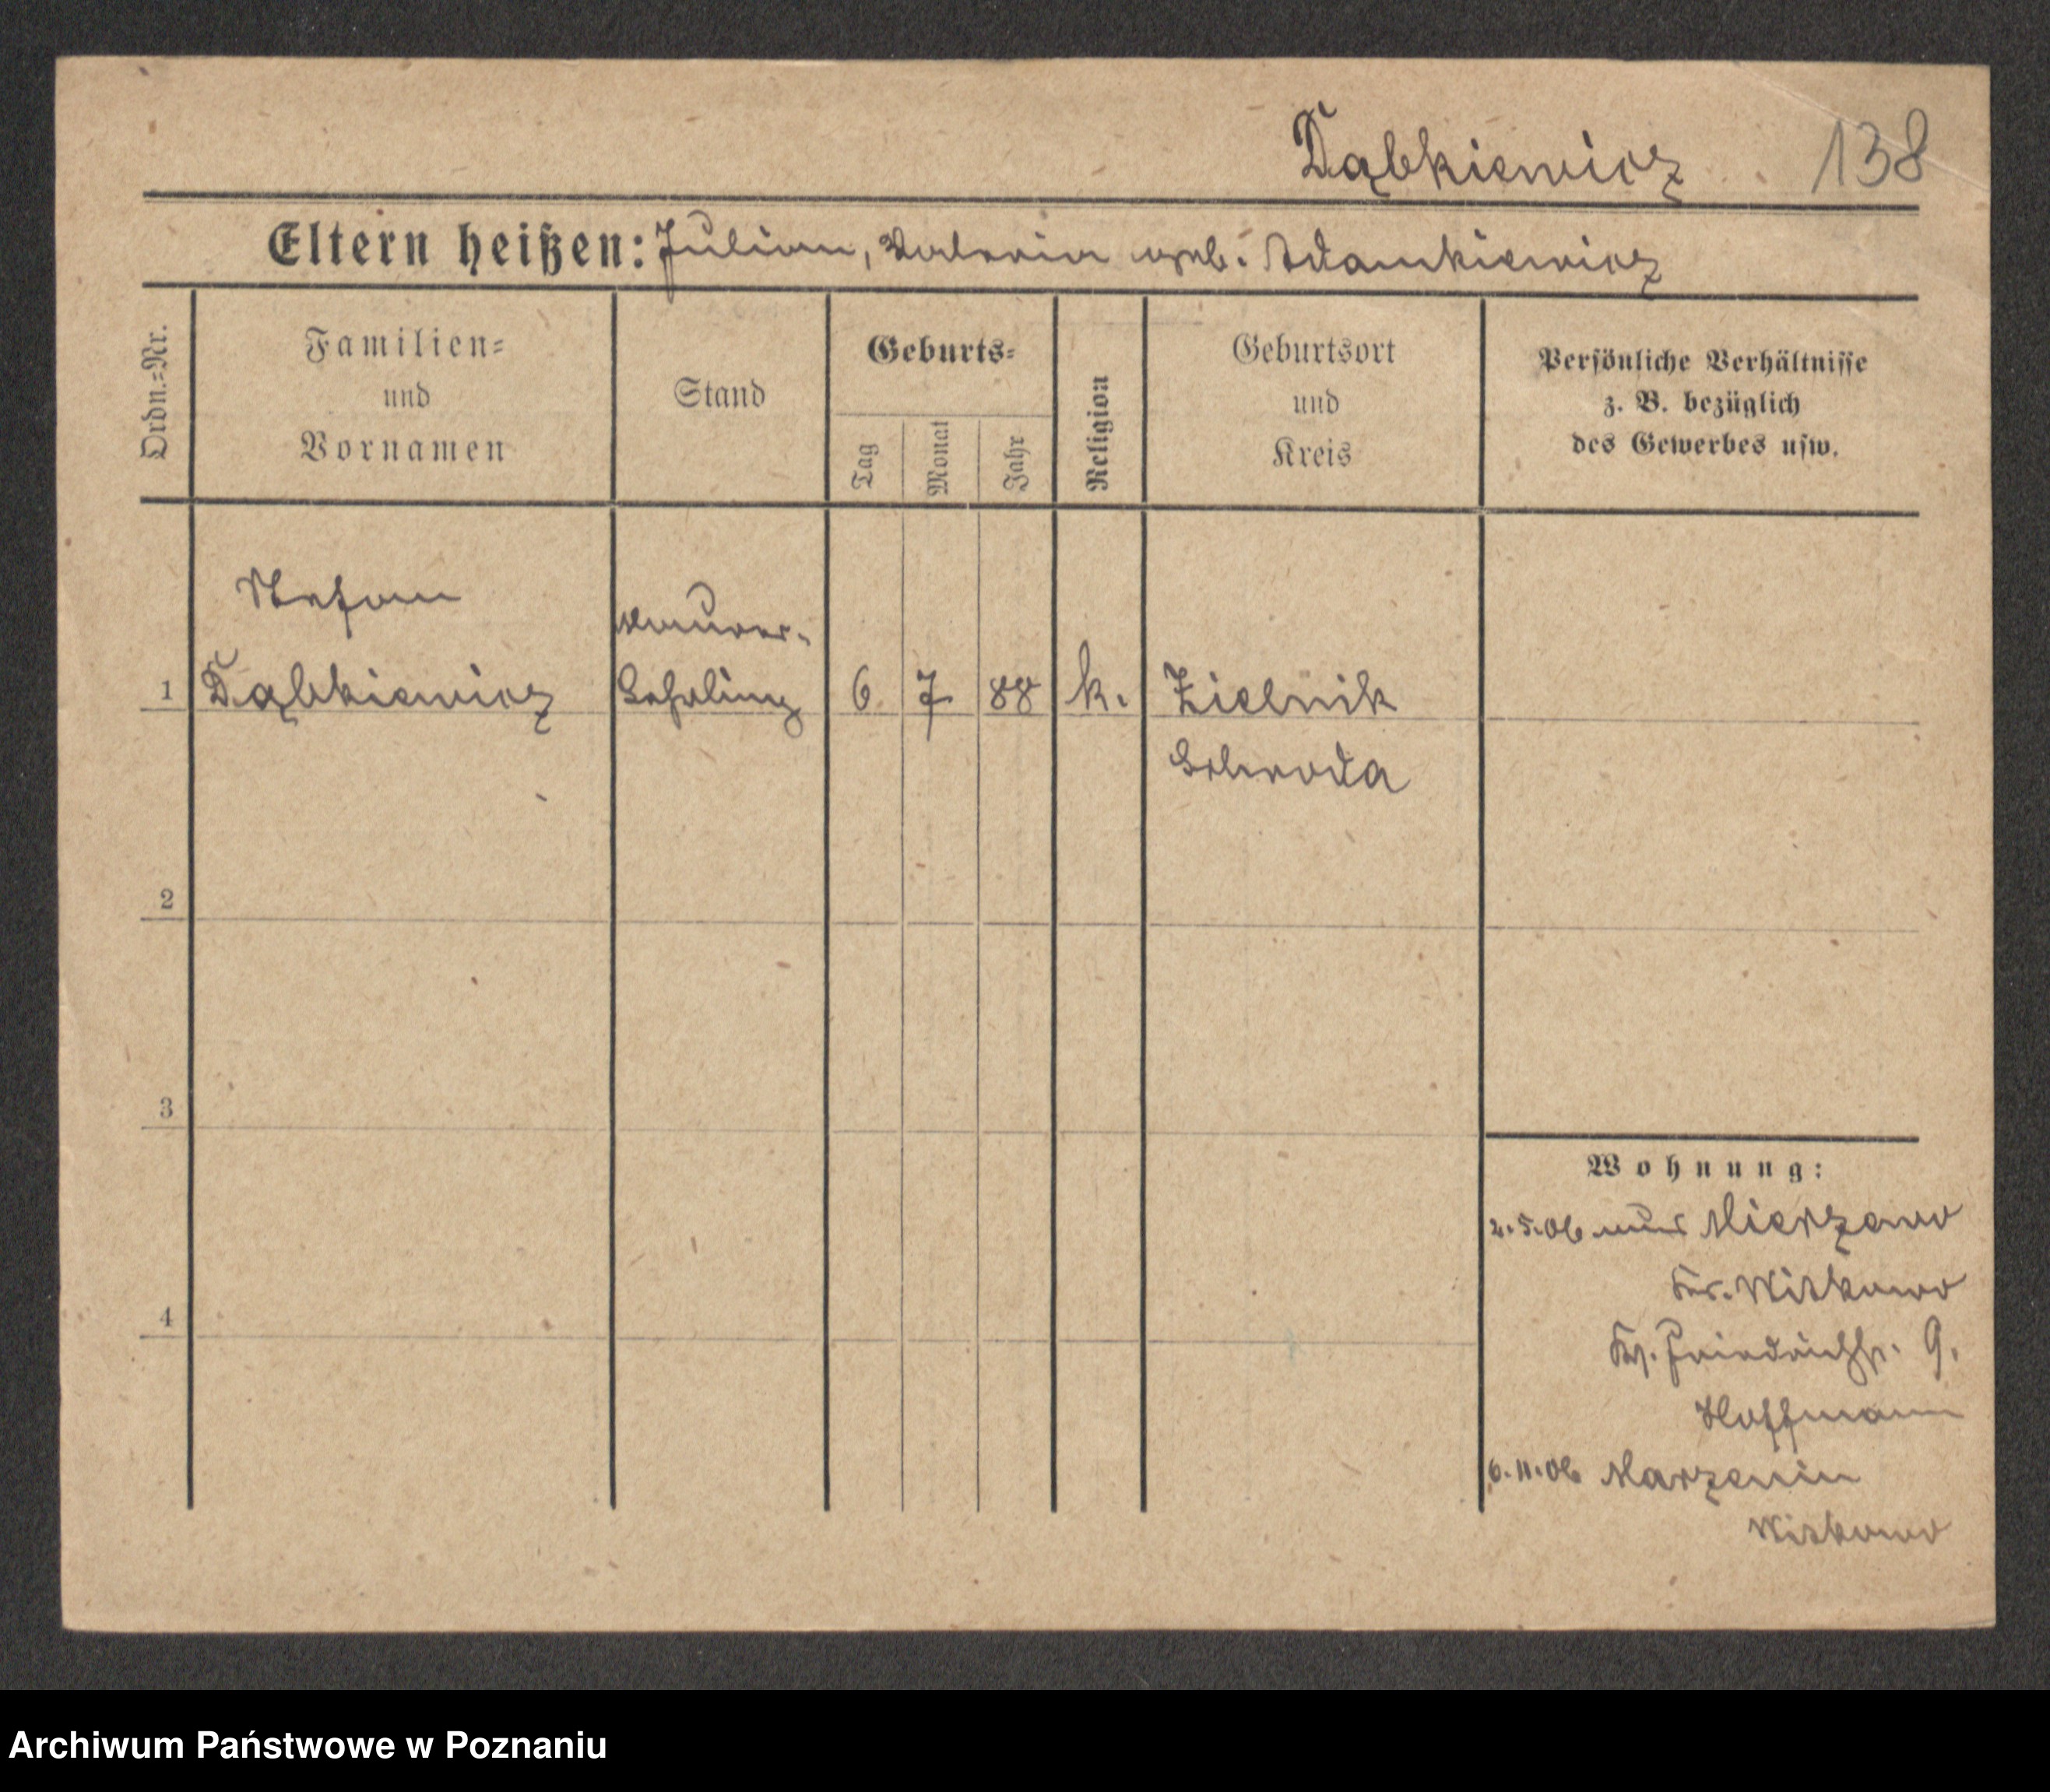 Dąbkiewicz 138
Eltern heißen: Julian, Valeria geb. Adamkiewicz
Ordn.=Nr.
Familien=
und
Vornamen
Stand
Geburts=
Tag
Monat
Jahr
Religion
Geburtsort
und
Kreis
Persönliche Verhältnisse
z. B. bezüglich
des Gewerbes usw.
Stefan
Maurer-
1 Dąbkiewicz Lehrling 6. 7. 88 k. Zielnik
Schroda
2
3
4
Wohnung:
2.5.06 aus Mierzewo
Kr. Witkowo
Friedrichstr. 9,
Hoffmann
6.11.06 Marzenin
Witkowo
Archiwum Państwowe w Poznaniu